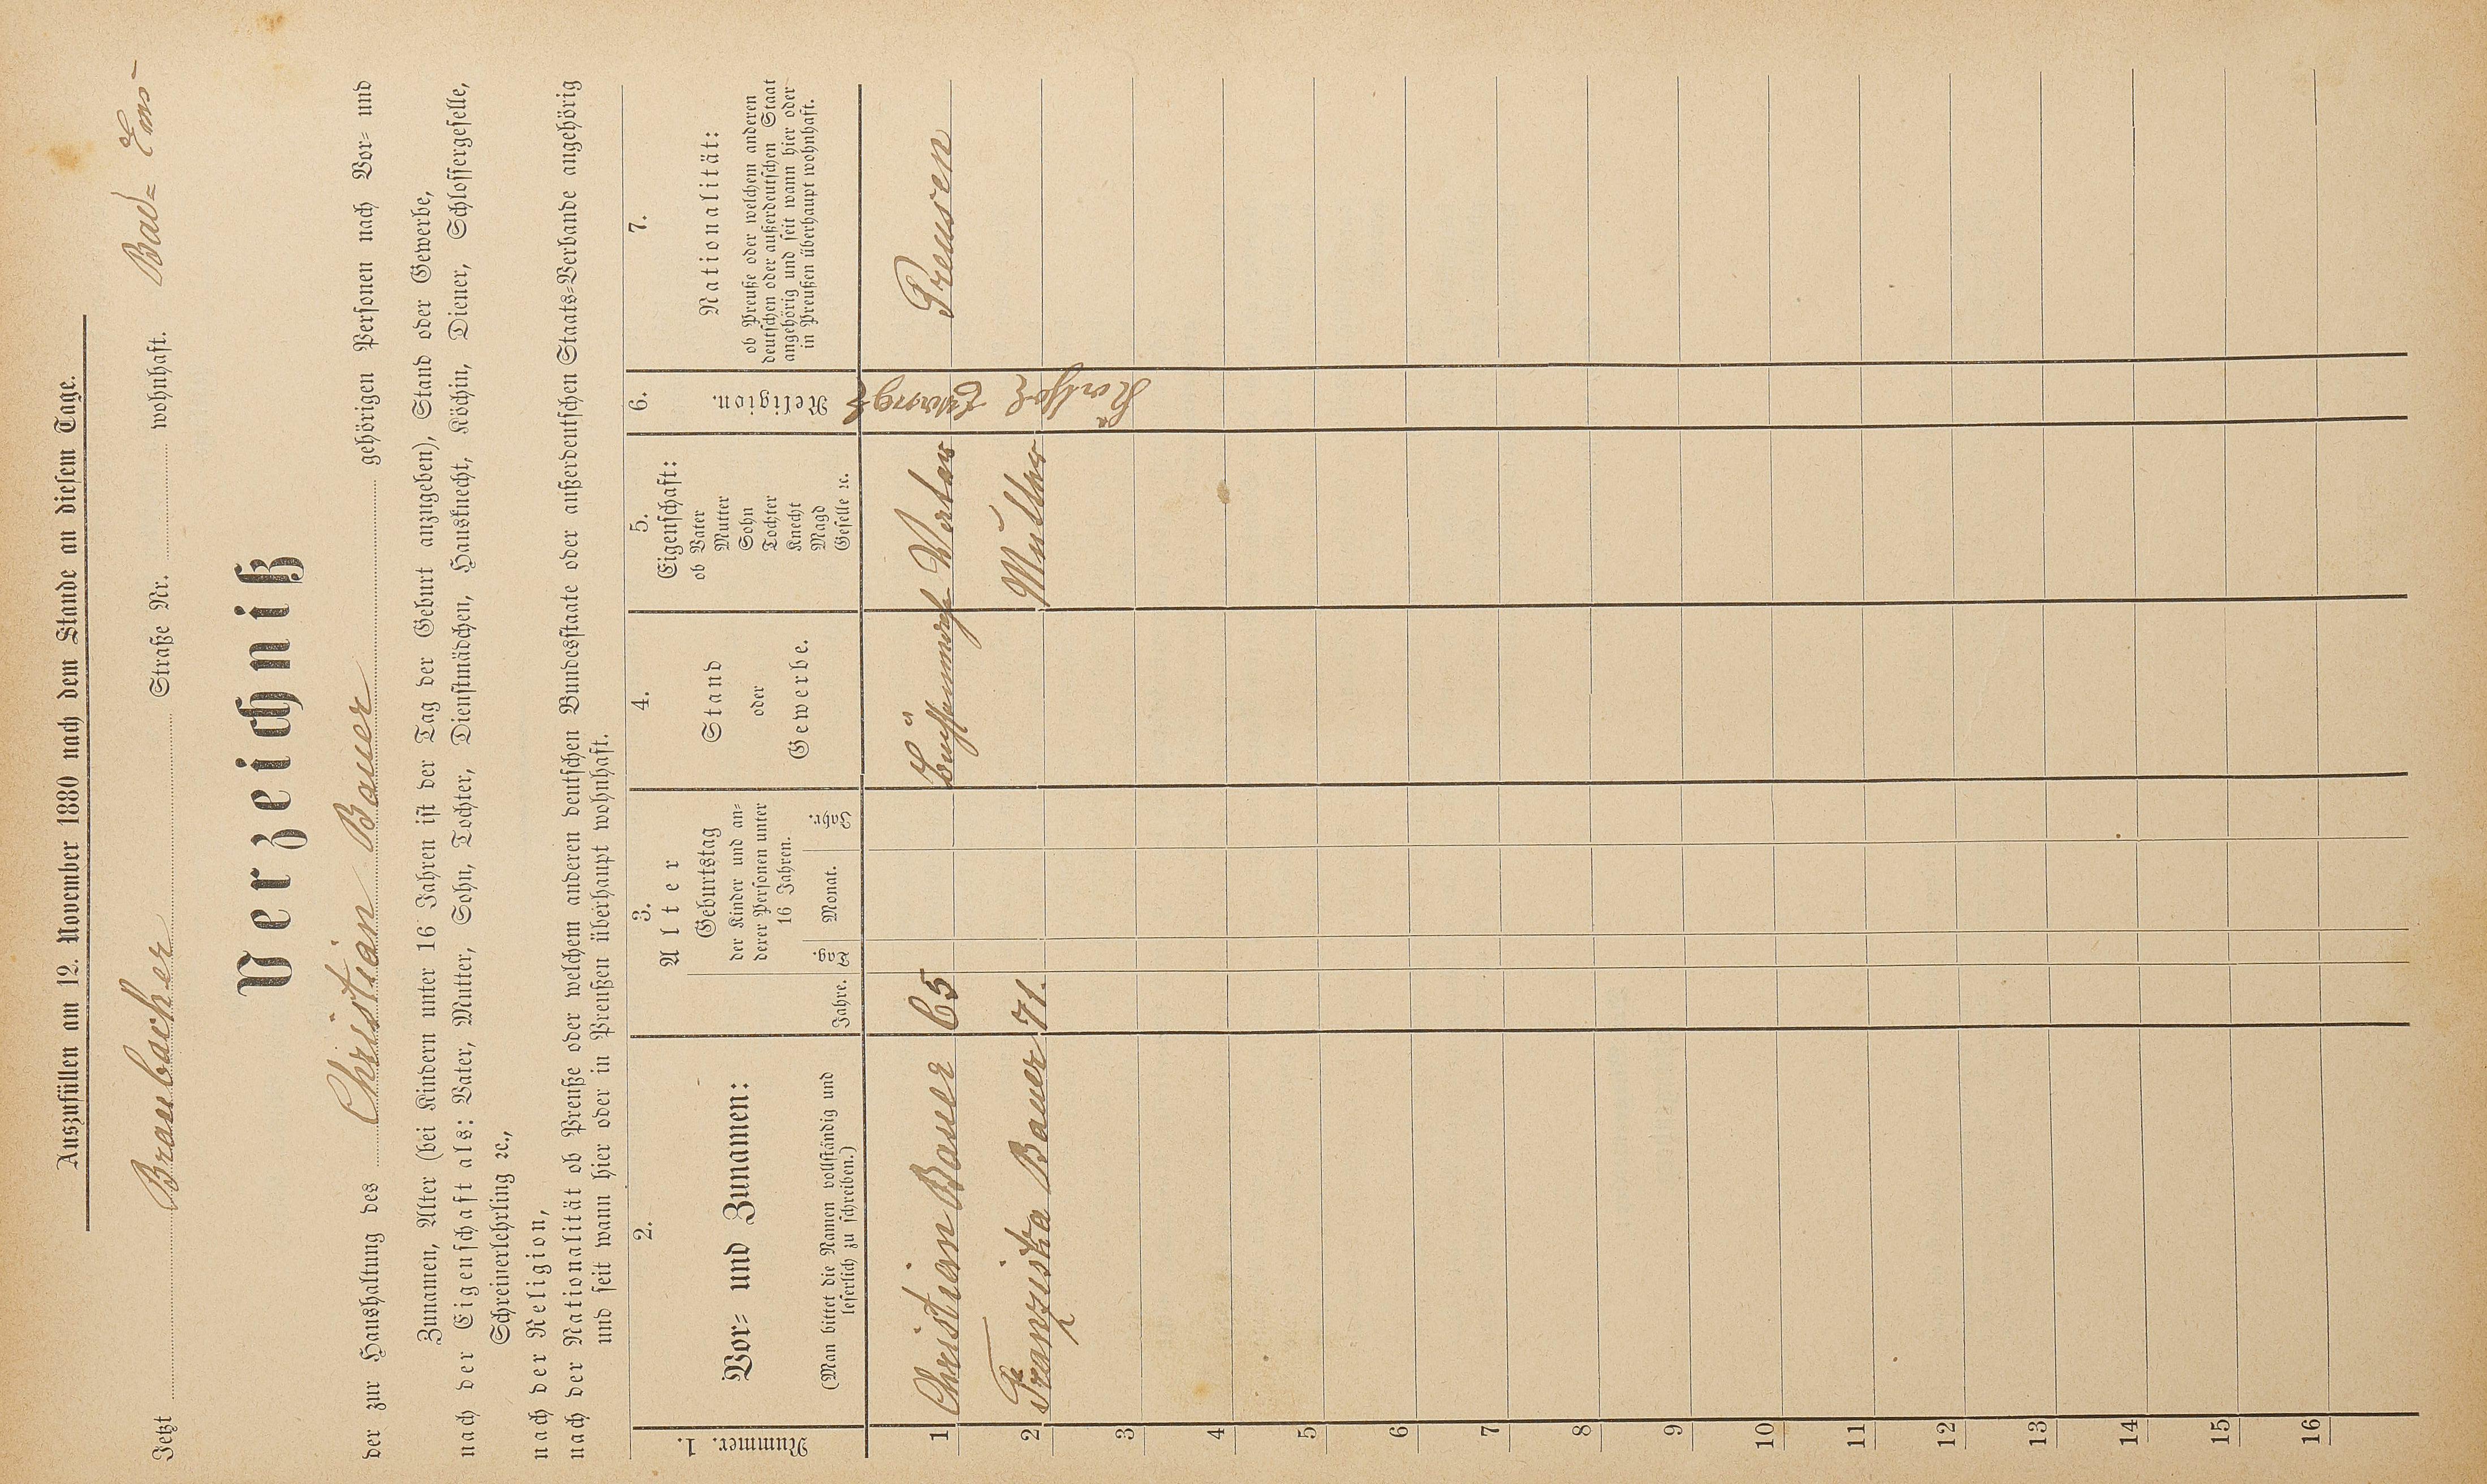 Auszufüllen am 12. November 1880 nach dem Stande an diesem Tage.
Jetzt Braubacher Straße Nr. wohnhaft. Bad= Ems
Verzeichniß
der zur Haushaltung des Christian Bauer gehörigen Personen nach Vor= und
Zunamen, Alter (bei Kindern unter 16 Jahren ist der Tag der Geburt anzugeben), Stand oder Gewerbe,
nach der Eigenschaft als: Vater, Mutter, Sohn, Tochter, Dienstmädchen, Hausknecht, Köchin, Diener, Schlossergeselle,
Schreinerlehrling ꝛc.,
nach der Religion,
nach der Nationalität ob Preuße oder welchem anderen deutschen Bundesstaate oder außerdeutschen Staats=Verbande angehörig
und seit wann hier oder in Preußen überhaupt wohnhaft.
1.
Nummer.
2.
Vor= und Zunamen:
(Man bittet die Namen vollständig und
leserlich zu schreiben.)
3.
Alter
Jahre.
Geburtstag
der Kinder und an=
derer Personen unter
16 Jahren.
Tag. Monat. Jahr.
4.
Stand
oder
Gewerbe.
5.
Eigenschaft:
ob Vater
Mutter
Sohn
Tochter
Knecht
Magd
Geselle ꝛc.
6.
Religion.
7.
Nationalität:
ob Preuße oder welchem anderen
deutschen oder außerdeutschen Staat
angehörig und seit wann hier oder
in Preußen überhaupt wohnhaft.
1 Christian Bauer 65 Vater Evang Preusen
2 Franziska Bauer 71. Mutter Kathol
3
4
5
6
7
8
9
10
11
12
13
14
15
16